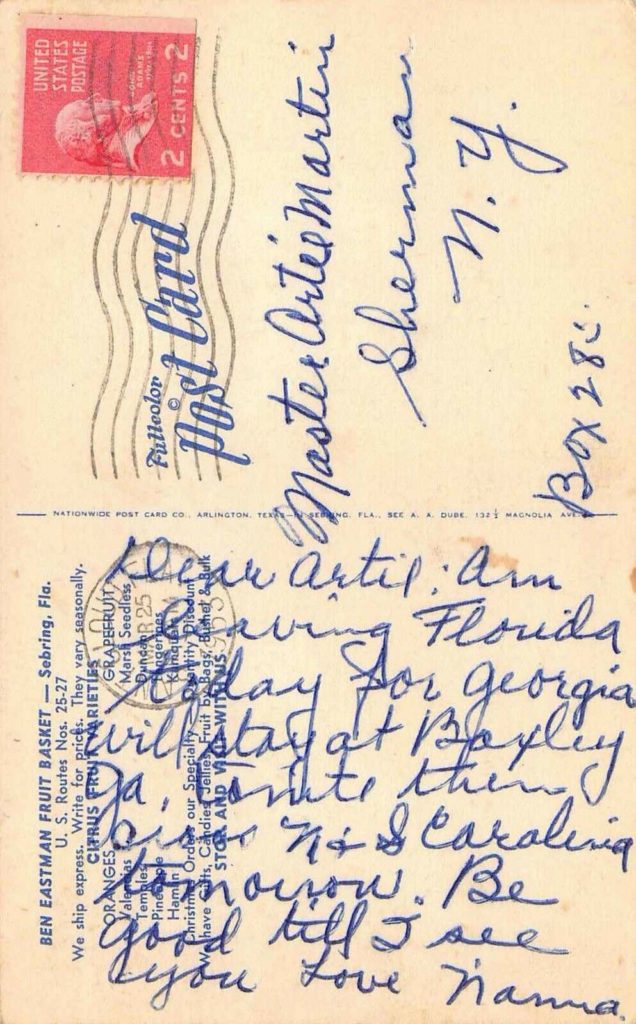 UNITED
STATES
POSTAGE
JOHN
ADAMS
2 CENTS 2
Fullcolor
©
Post Card
Master Artie Martin
Sherman
N. Y.
Box 28
NATIONWIDE POST CARD CO., ARLINGTON, TEXAS—IN SEBRING, FLA., SEE A. A. DUBE, 132½ MAGNOLIA AVE.
BEN EASTMAN FRUIT BASKET — Sebring, Fla.
U. S. Routes Nos. 25-27
We ship express. Write for prices. They vary seasonally.
CITRUS FRUIT VARIETIES
ORANGES
Valencias
Temples
Pineapple
Hamlin
GRAPEFRUIT
Marsh Seedless
Duncan
Tangerines
Kumquats
Christmas Orders our Specialty. Quantity Discount
We have Gifts, Candies, Jellies, Fruit by Bags, Bushel & Bulk
STOP AND VISIT WITH US
Dear Artie: Am
leaving Florida
today for Georgia
will stay at Baxley
Ga. Tonite then
N & S Carolina
tomorrow. Be
good till I see
you Love Nanna.